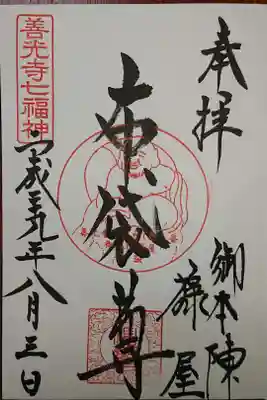 奉拝
御本陣
藤屋
布袋尊
善光寺七福神
平成三九年八月三日